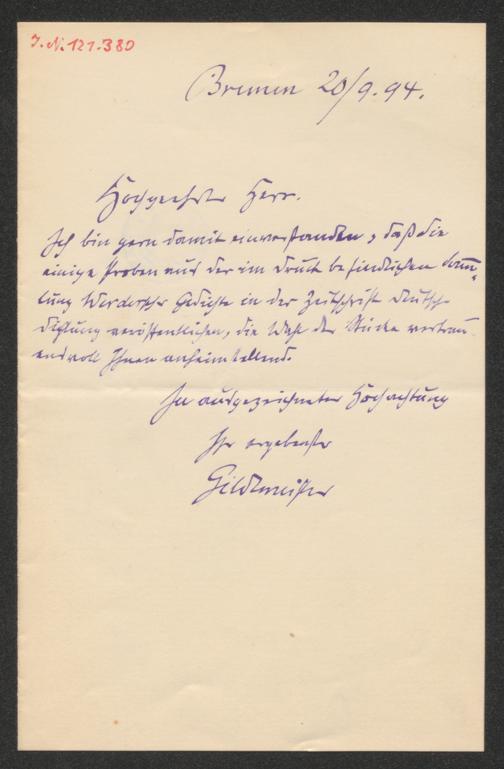 J. N. 121.380
Bremen 20/9. 94.
Hochgeehrter Herr.
Ich bin gern damit einverstanden, daß Sie
einige Proben aus der im Druck befindlichen Samm-
lung Gedichte in der Zeitschrift Deutsche
Dichtung veröffentlichen, die Wahl der Stücke vertrau-
ensvoll Ihnen anheimstellend.
In ausgezeichneter Hochachtung
Ihr ergebenster
Gildemeister